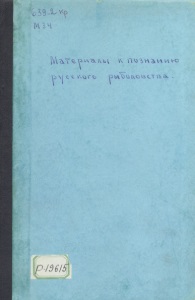 639.2 хр
М34
Материалы к познанию
русского рыболовства.
Р-19615